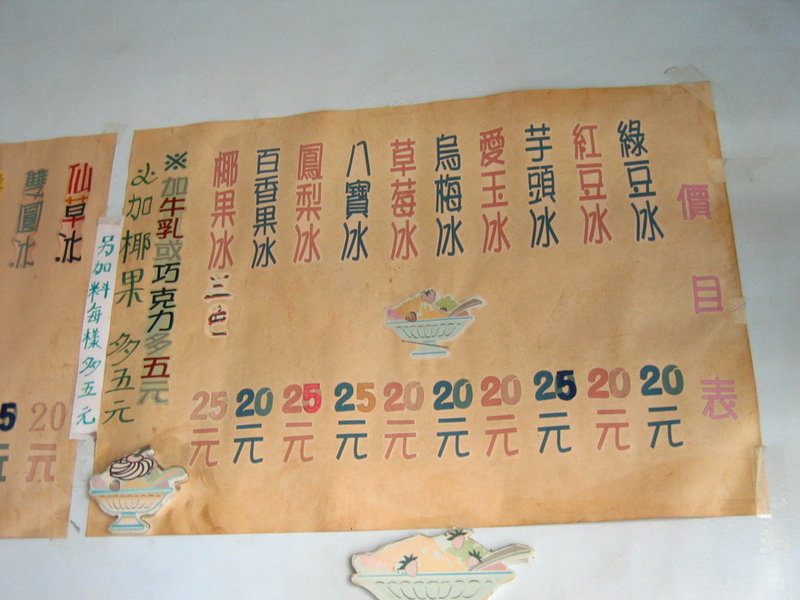 價目表
綠豆冰 20元
紅豆冰 20元
芋頭冰 25元
愛玉冰 20元
烏梅冰 20元
草莓冰 20元
八寶冰 25元
鳳梨冰 25元
百香果冰 20元
椰果冰 三色 25元
※加牛乳或巧克力多五元
必加椰果 多五元
另加料每樣多五元
仙草冰 20元
圓冰 5元